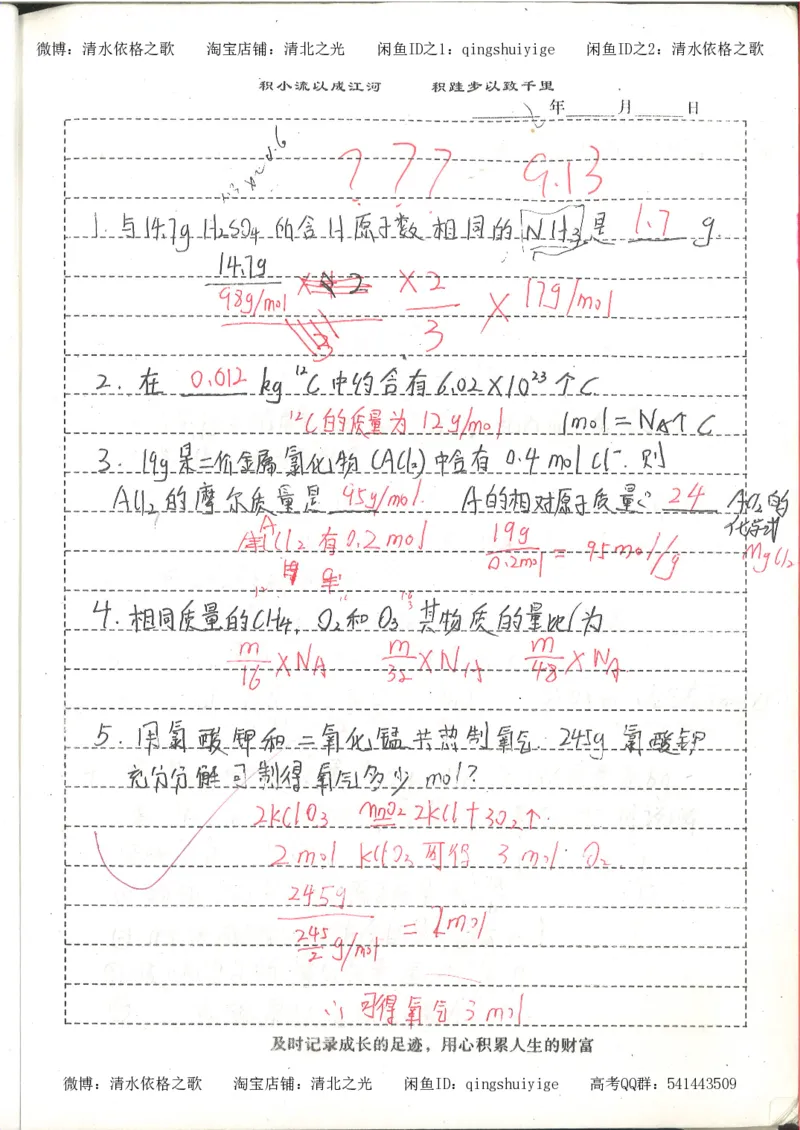 微博：清水依格之歌 淘宝店铺：清北之光 闲鱼ID之1：qingshuiyige 闲鱼ID之2：清水依格之歌
积小流以成江河 积跬步以致千里
年 月 日
? ? ? 9.13
1. 与14.7g H₂SO₄ 所含H原子数相同的 NH₃ 是 1.7 g.
14.7g
98g/mol × 2 / 3 × 17g/mol
2. 在 0.012 kg ¹²C中约含有6.02×10²³个C
¹²C的质量为12g/mol 1mol=NA个C
3. 19g某二价金属氯化物(ACl₂)中含有0.4mol Cl⁻. 则
ACl₂的摩尔质量是 95g/mol. A的相对原子质量: 24 ACl₂的
化学式
MgCl₂
ACl₂有0.2mol 19g/0.2mol = 95mol/g
4. 相同质量的CH₄, O₂和O₃其物质的量比为
m/16 ×NA m/32 ×NA m/48 ×NA
5. 用氯酸钾和二氧化锰共热制氧气. 245g 氯酸钾
充分分解可制得氧气多少 mol?
2KClO₃ MnO₂ 2KCl+3O₂↑.
2mol KClO₃可得 3mol O₂
245g
245/2 g/mol = 2mol
∴可得氧气3mol
及时记录成长的足迹，用心积累人生的财富
微博：清水依格之歌 淘宝店铺：清北之光 闲鱼ID：qingshuiyige 高考QQ群：541443509